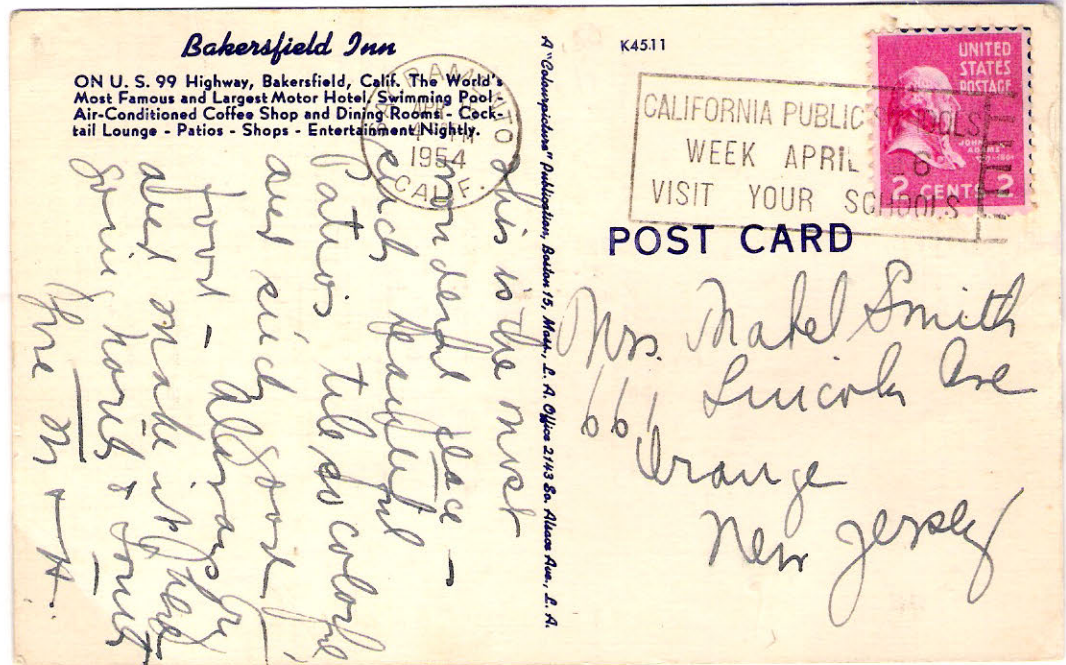 Bakersfield Inn
ON U. S. 99 Highway, Bakersfield, Calif. The World's
Most Famous and Largest Motor Hotel, Swimming Pool
Air-Conditioned Coffee Shop and Dining Rooms - Cock-
tail Lounge - Patios - Shops - Entertainment Nightly.
This is the most
wonderful place -
such beautiful
Patios tile so colorful
and such good
food - always try
and make it here
going home &
A "Colourpicture" Publication, Boston 15, Mass., L. A. Office 2143 So. Alsace Ave., L. A.
K4511
SACRAMENTO
APR
4 PM
1954
CALIF.
CALIFORNIA PUBLIC SCHOOLS
WEEK APRIL 6
VISIT YOUR SCHOOLS
UNITED
STATES
POSTAGE
JOHN
ADAMS
2 CENTS 2
POST CARD
Mrs. Mabel Smith
661 Lincoln Ave
Orange
New Jersey